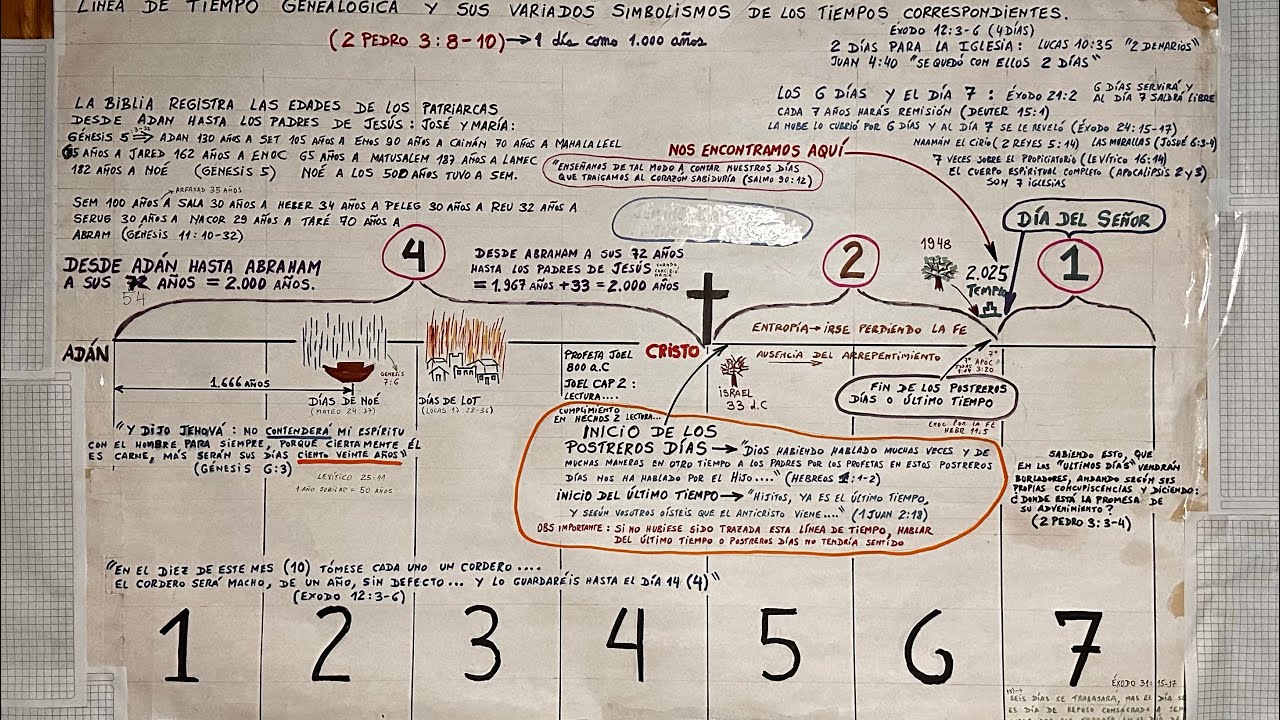 LÍNEA DE TIEMPO GENEALÓGICA Y SUS VARIADOS SIMBOLISMOS DE LOS TIEMPOS CORRESPONDIENTES.
(2 PEDRO 3:8-10) → 1 día como 1.000 años
ÉXODO 12:3-6 (4 DÍAS)
2 DÍAS PARA LA IGLESIA: LUCAS 10:35 "2 DENARIOS"
JUAN 4:40 "SE QUEDÓ CON ELLOS 2 DÍAS"
LOS 6 DÍAS Y EL DÍA 7: ÉXODO 21:2 6 DÍAS SERVIRÁ Y
AL DÍA 7 SALDRÁ LIBRE
CADA 7 AÑOS HARÁS REMISIÓN (DEUTER 15:1)
LA NUBE LO CUBRIÓ POR 6 DÍAS Y AL DÍA 7 SE LE REVELÓ (ÉXODO 24:15-17)
NAAMAN EL CIRIO (2 REYES 5:14) LAS MORALLAS (JOSUÉ 6:3-4)
7 VECES SOBRE EL PROPICIATORIO (LEVÍTICO 16:14)
EL CUERPO ESPIRITUAL COMPLETO (APOCALIPSIS 2 y 3)
SON 7 IGLESIAS
LA BIBLIA REGISTRA LAS EDADES DE LOS PATRIARCAS
DESDE ADÁN HASTA LOS PADRES DE JESÚS: JOSÉ Y MARÍA:
GÉNESIS 5 → ADAN 130 AÑOS A SET 105 AÑOS A ENOS 90 AÑOS A CAINÁN 70 AÑOS A MAHALALEEL
65 AÑOS A JARED 162 AÑOS A ENOC 65 AÑOS A MATUSALEM 187 AÑOS A LAMEC
182 AÑOS A NOÉ (GENESIS 5) NOÉ A LOS 500 AÑOS TUVO A SEM.
ARFAXAD 35 AÑOS
SEM 100 AÑOS A SALA 30 AÑOS A HEBER 34 AÑOS A PELEG 30 AÑOS A REU 32 AÑOS A
SERUG 30 AÑOS A NACOR 29 AÑOS A TARÉ 70 AÑOS A
ABRAM (GENESIS 11:10-32)
NOS ENCONTRAMOS AQUÍ
"ENSEÑANOS DE TAL MODO A CONTAR NUESTROS DÍAS
QUE TRAIGAMOS AL CORAZÓN SABIDURÍA (SALMO 90:12)
DÍA DEL SEÑOR
4
2
1
DESDE ADÁN HASTA ABRAHAM
A SUS 72 AÑOS = 2.000 AÑOS.
54
DESDE ABRAHAM A SUS 72 AÑOS
HASTA LOS PADRES DE JESÚS
= 1.967 AÑOS + 33 = 2.000 AÑOS
1948
2.025
TEMPLO
ADÁN
CRISTO
ENTROPÍA → IRSE PERDIENDO LA FE
AUSENCIA DEL ARREPENTIMIENTO
1.666 AÑOS
GENESIS
7:6
DÍAS DE NOÉ
(MATEO 24:37)
DÍAS DE LOT
(LUCAS 17:28-36)
PROFETA JOEL
800 a.C
JOEL CAP 2:
LECTURA....
CUMPLIMIENTO
EN HECHOS 2 LECTURA...
ISRAEL
33 d.C
APOC
3:20
FIN DE LOS POSTREROS
DÍAS O ÚLTIMO TIEMPO
ENOC POR LA FE
HEBR 11:5
"Y DIJO JEHOVÁ: NO CONTENDERÁ MI ESPÍRITU
CON EL HOMBRE PARA SIEMPRE, PORQUE CIERTAMENTE ÉL
ES CARNE, MAS SERÁN SUS DÍAS CIENTO VEINTE AÑOS"
(GÉNESIS 6:3)
LEVÍTICO 25:11
1 AÑO JUBILAR = 50 AÑOS
INICIO DE LOS
POSTREROS DÍAS → "DIOS HABIENDO HABLADO MUCHAS VECES Y DE
MUCHAS MANERAS EN OTRO TIEMPO A LOS PADRES POR LOS PROFETAS EN ESTOS POSTREROS
DÍAS NOS HA HABLADO POR EL HIJO...." (HEBREOS 1:1-2)
INICIO DEL ÚLTIMO TIEMPO → "HIJITOS, YA ES EL ÚLTIMO TIEMPO,
Y SEGÚN VOSOTROS OÍSTEIS QUE EL ANTICRISTO VIENE...." (1 JUAN 2:18)
OBS IMPORTANTE: SI NO HUBIESE SIDO TRAZADA ESTA LÍNEA DE TIEMPO, HABLAR
DEL ÚLTIMO TIEMPO O POSTREROS DÍAS NO TENDRÍA SENTIDO
SABIENDO ESTO, QUE
EN LOS "ULTIMOS DÍAS" VENDRÁN
BURLADORES, ANDANDO SEGÚN SUS
PROPIAS CONCUPISCENCIAS Y DICIENDO:
¿DONDE ESTÁ LA PROMESA DE
SU ADVENIMIENTO?
(2 PEDRO 3:3-4)
"EN EL DIEZ DE ESTE MES (10) TÓMESE CADA UNO UN CORDERO....
EL CORDERO SERÁ MACHO, DE UN AÑO, SIN DEFECTO... Y LO GUARDARÉIS HASTA EL DÍA 14 (4)"
(EXODO 12:3-6)
1 2 3 4 5 6 7
ÉXODO 31:15-17
SEIS DÍAS SE TRABAJARÁ, MAS EL DÍA SE
ES DÍA DE REPOSO CONSAGRADO A JEH